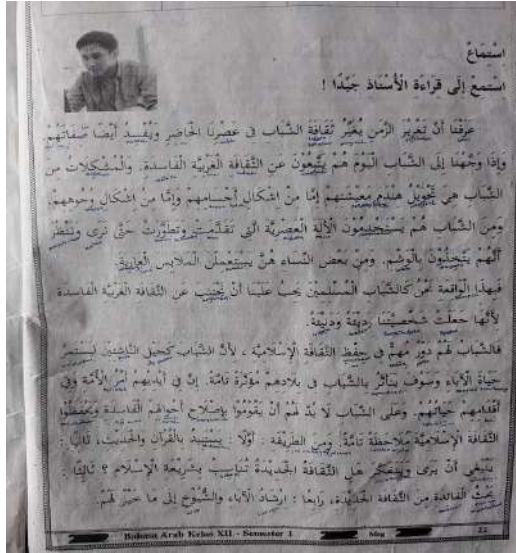 اِسْتِمَاعٌ
اِسْتَمِعْ إِلَى قِرَاءَةِ الْأُسْتَاذِ جَيِّدًا !
عَرَفْنَا أَنَّ تَغْرِيْرَ الزَّمَنِ يُغَيِّرُ ثَقَافَةَ الشَّبَابِ فِي عَصْرِنَا الْحَاضِرِ وَيُفْسِدُ أَيْضًا صِفَاتَهُمْ.
وَإِذَا وَجَّهْنَا إِلَى الشَّبَابِ الْيَوْمَ هُمْ يَتَّبِعُوْنَ عَنِ الثَّقَافَةِ الْغَرْبِيَّةِ الْفَاسِدَةِ. وَالْمُشْكِلَاتُ مِنَ
الشَّبَابِ هِيَ تَحْوِيْلُ مَعِيْشَتِهِمْ إِمَّا مِنْ اِشْكَالِ أَجْسَامِهِمْ وَإِمَّا مِنْ اِشْكَالِ وُجُوْهِهِمْ.
وَمِنَ الشَّبَابِ هُمْ يَسْتَخْدِمُوْنَ الْآلَةَ الْعَصْرِيَّةَ الَّتِي تَقَدَّمَتْ وَتَطَوَّرَتْ حَتَّى نَرَى وَنَنْظُرَ
أَنَّهُمْ يَتَجَمَّلُوْنَ بِالْوَشْمِ. وَمِنْ بَعْضِ النِّسَاءِ هُنَّ يَسْتَعْمِلْنَ الْمَلَابِسَ الْعَارِيَةَ.
فَبِهَذَا الْوَاقِعَةِ نَحْنُ كَالشَّبَابِ الْمُسْلِمِيْنَ يَجِبُ عَلَيْنَا أَنْ نَجْتَنِبَ عَنِ الثَّقَافَةِ الْغَرْبِيَّةِ الْفَاسِدَةِ
لِأَنَّهَا جَعَلَتْ رَدِيْئَةً وَدَنِيْئَةً.
فَالشَّبَابُ لَهُمْ دَوْرٌ مُهِمٌّ فِي حِفْظِ الثَّقَافَةِ الْإِسْلَامِيَّةِ ، لِأَنَّ الشَّبَابَ كَجِيْلِ النَّاشِئِيْنَ لِيَسْتَمِرَّ
حَيَاةَ الْآبَاءِ وَسَوْفَ يَتَأَثَّرُ بِالشَّبَابِ فِي بِلَادِهِمْ مُؤَثِّرَةً تَامَّةً. إِنَّ فِي أَيْدِيْهِمْ أَمْرَ الْأُمَّةِ وَفِي
أَقْدَامِهِمْ حَيَاتُهُمْ. وَعَلَى الشَّبَابِ لَا بُدَّ لَهُمْ أَنْ يَقُوْمُوا بِإِصْلَاحِ أَحْوَالِهِمُ الْفَاسِدَةِ وَيَحْفَظُوا
الثَّقَافَةَ الْإِسْلَامِيَّةَ مُلَاحَظَةً تَامَّةً. وَمِنَ الطَّرِيْقَةِ : أَوَّلًا : بِالْقُرْآنِ وَالْحَدِيْثِ، ثَانِيًا :
يَنْبَغِي أَنْ يَرَى وَيَتَفَكَّرَ هَلِ الثَّقَافَةُ الْجَدِيْدَةُ تُنَاسِبُ بِشَرِيْعَةِ الْإِسْلَامِ ؟ ثَالِثًا :
بَحْثُ الْفَائِدَةِ مِنَ الثَّقَافَةِ الْجَدِيْدَةِ، رَابِعًا : اِرْشَادُ الْآبَاءِ وَالشُّيُوْخِ إِلَى مَا خَيْرٌ لَهُمْ.
Bahasa Arab Kelas XII - Semester 1 22